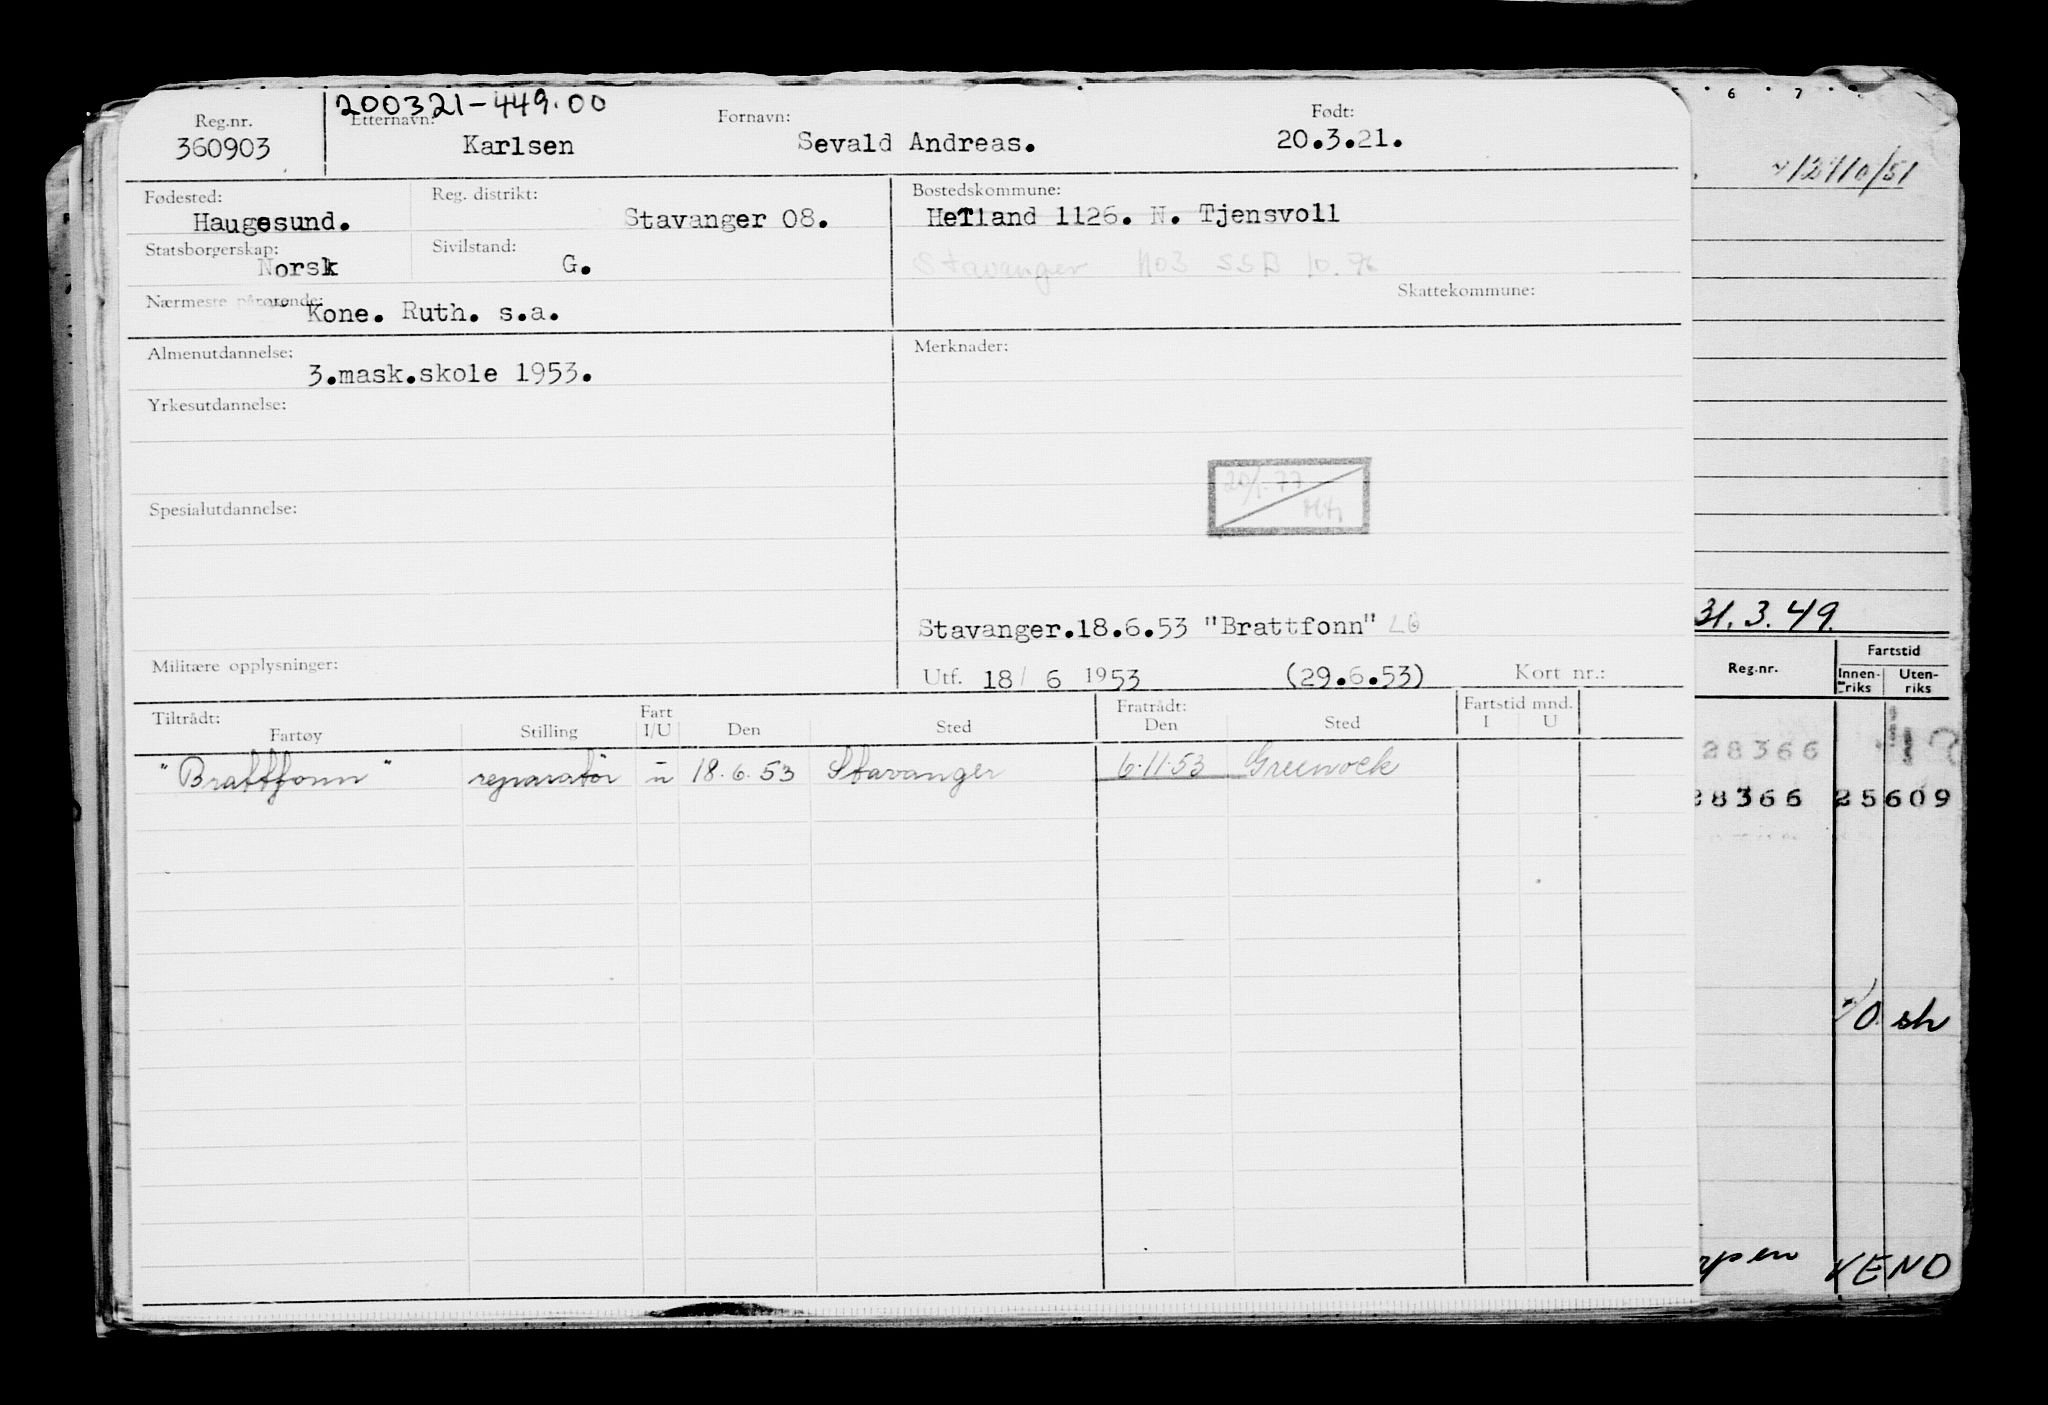 200321-449.00
Reg.nr. Etternavn: Fornavn: Født:
360903 Karlsen Sevald Andreas. 20.3.21.
Fødested: Reg. distrikt: Bostedskommune:
Haugesund. Stavanger 08. Hetland 1126. N. Tjensvoll
Statsborgerskap: Sivilstand:
Norsk G. Stavanger 1103 SSB 10.76
Skattekommune:
Nærmeste pårørende:
Kone. Ruth. s.a.
Almenutdannelse: Merknader:
3.mask.skole 1953.
Yrkesutdannelse:
20/1-77
Spesialutdannelse:
Stavanger.18.6.53 "Brattfonn" LG
Militære opplysninger:
Utf. 18/ 6 1953 (29.6.53) Kort nr.:
Tiltrådt: Fart Fratrådt: Fartstid mnd.
Fartøy Stilling I/U Den Sted Den Sted I U
"Brattfonn" reparatør u 18.6.53 Stavanger 6.11.53 Greenock
6 7
12/10/51
31.3.49.
Reg.nr. Fartstid
Innen-riks Uten-riks
28366
28366 25609
sh
KEND